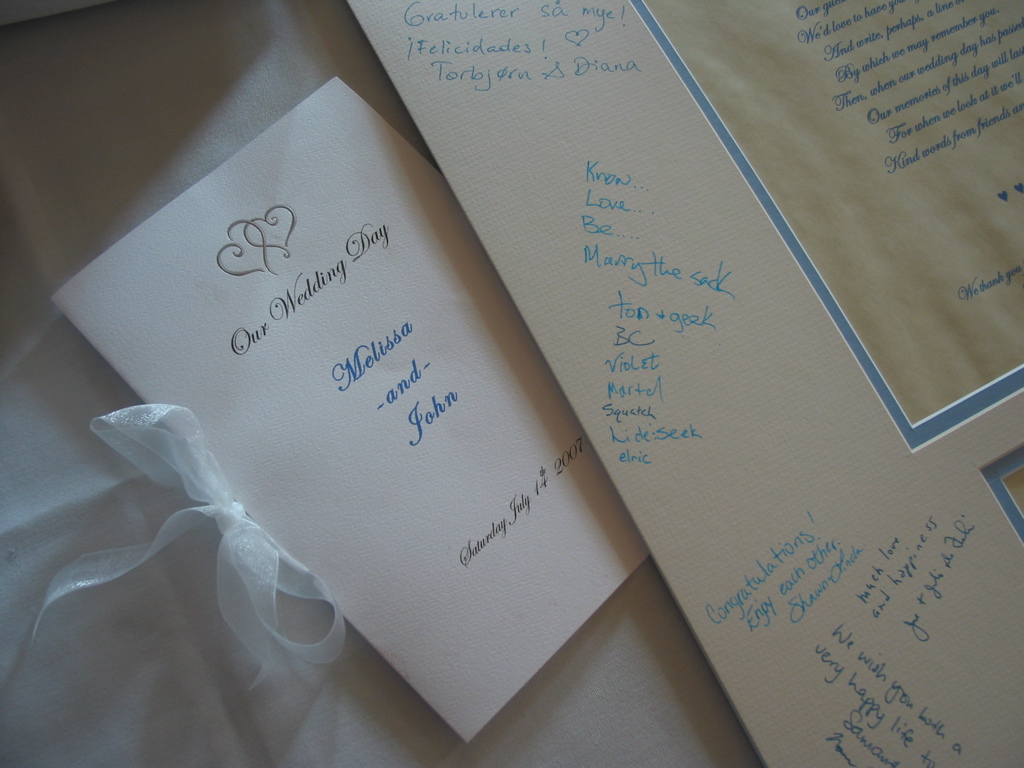 Our Wedding Day
Melissa
-and-
John
Saturday July 14th 2007
Gratulerer så mye!
¡Felicidades! ♡
Torbjørn & Diana
Know...
Love...
Be....
Marry the sack
BC
Violet
Martel
Squatch
hide:seek
elric
Congratulations!
Enjoy each other.
much love
and happiness
We wish you both a
very happy life
Our
We'd love to have you
And write, perhaps, a line
By which we may remember you.
Then, when our wedding day has passed
Our memories of this day will last
For when we look at it we'll
Kind words from friends
We thank you